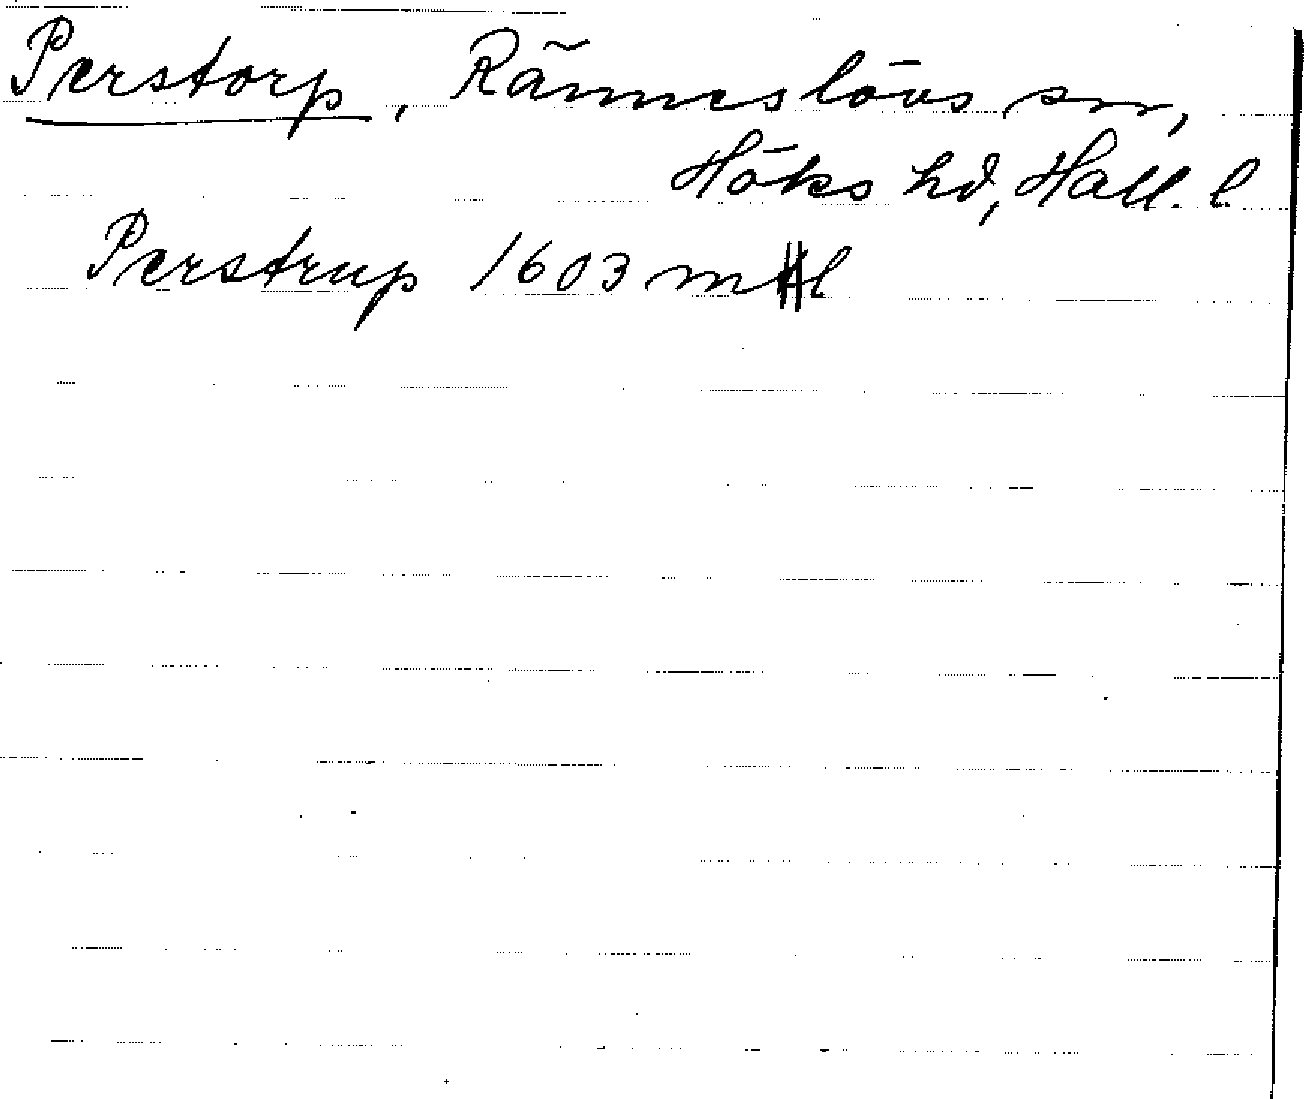 Perstorp, Ränneslövs sn,
Höks hd, Hall. l
Perstrup 1603 ml